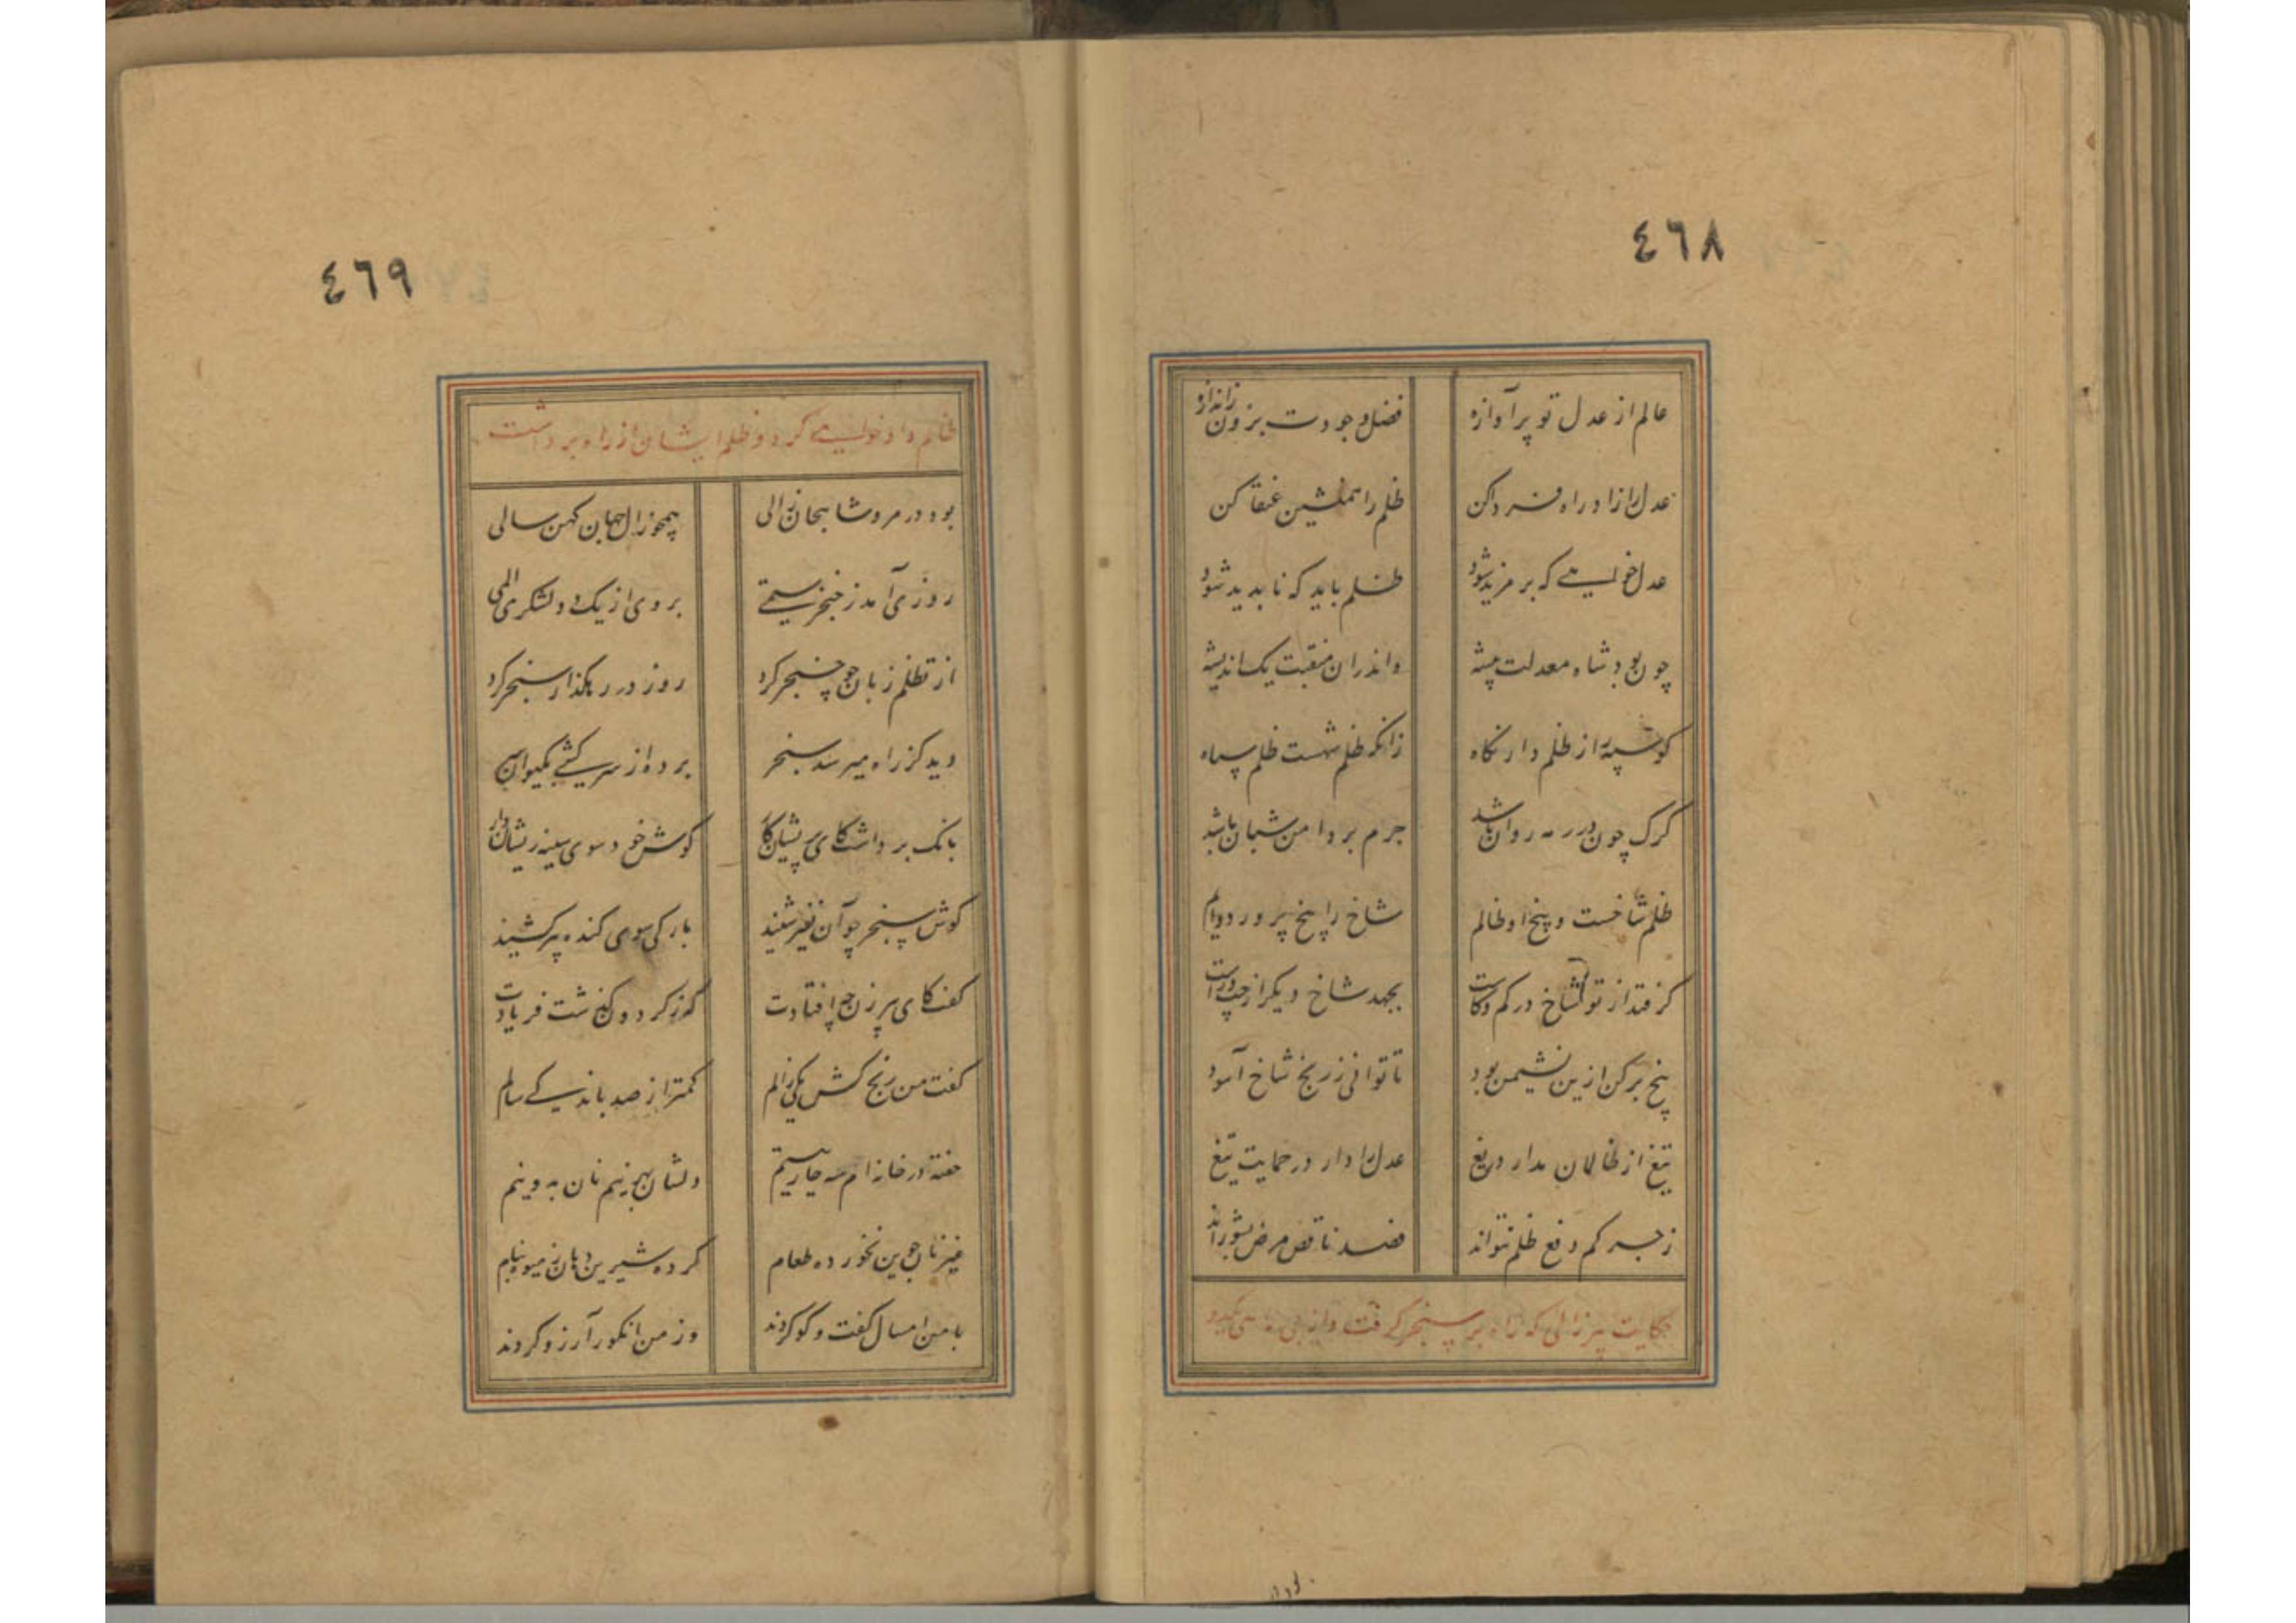 ٤٦٨
عالم از عدل تو پر آوازه فضل و جودت برون ز اندازه
عدل را زاد راه فردا کن ظلم را همنشین عنقا کن
عدل خواهی که بر مزید شود ظلم باید که ناپدید شود
چون بود شاه معدلت پیشه واندران منقبت یک اندیشه
کو سپه از ظلم دار نگاه زانکه ظلم شهست ظلم سپاه
گرگ چون در رمه روان باشد جرم بر دامن شبان باشد
ظلم شاخست و بیخ او ظالم شاخ را بیخ پرورد دایم
گر فتد از تو شاخ در کم و کاست بجهد شاخ دیگر از چپ و راست
بیخ برکن ازین نشیمن بود تا توانی ز رنج شاخ آسود
تیغ از ظالمان مدار دریغ عدل را دار در حمایت تیغ
زجر کم دفع ظلم نتواند فصد ناقص مرض بشوراند
حکایت پیرزالی که راه بر سنجر گرفت و از
٤٦٩
ظالم داد خواهی کرد و ظلم ایشان از راه برداشت
بود در مرو شاهجان زالی همچو زال جهان کهن سالی
روزی آمد ز خنجر ستمی بر وی از یک دو لشکری المی
از تظلم زبان چو خنجر کرد روز در رهگذار سنجر کرد
دید کز راه میرسد سنجر برده از سرکشی بکیوان سر
بانگ برداشت کای پریشان کار گوش خود سوی سینه ریشان دار
گوش سنجر چو آن نفیر شنید بارگی سوی گنده پیر کشید
گفت کای پیرزن چه افتادت که ز گردون گذشت فریادت
گفت من رنج کش یکی زالم کمتر از صد باند یکی سالم
خفته در خانه ام سه چار یتیم دلشان بهر نیم نان به دو نیم
غیر نان جوین نخورده طعام کرده شیرین دهان ز میوه بنام
با من امسال گفت و گو کردند وز من انگور آرزو کردند